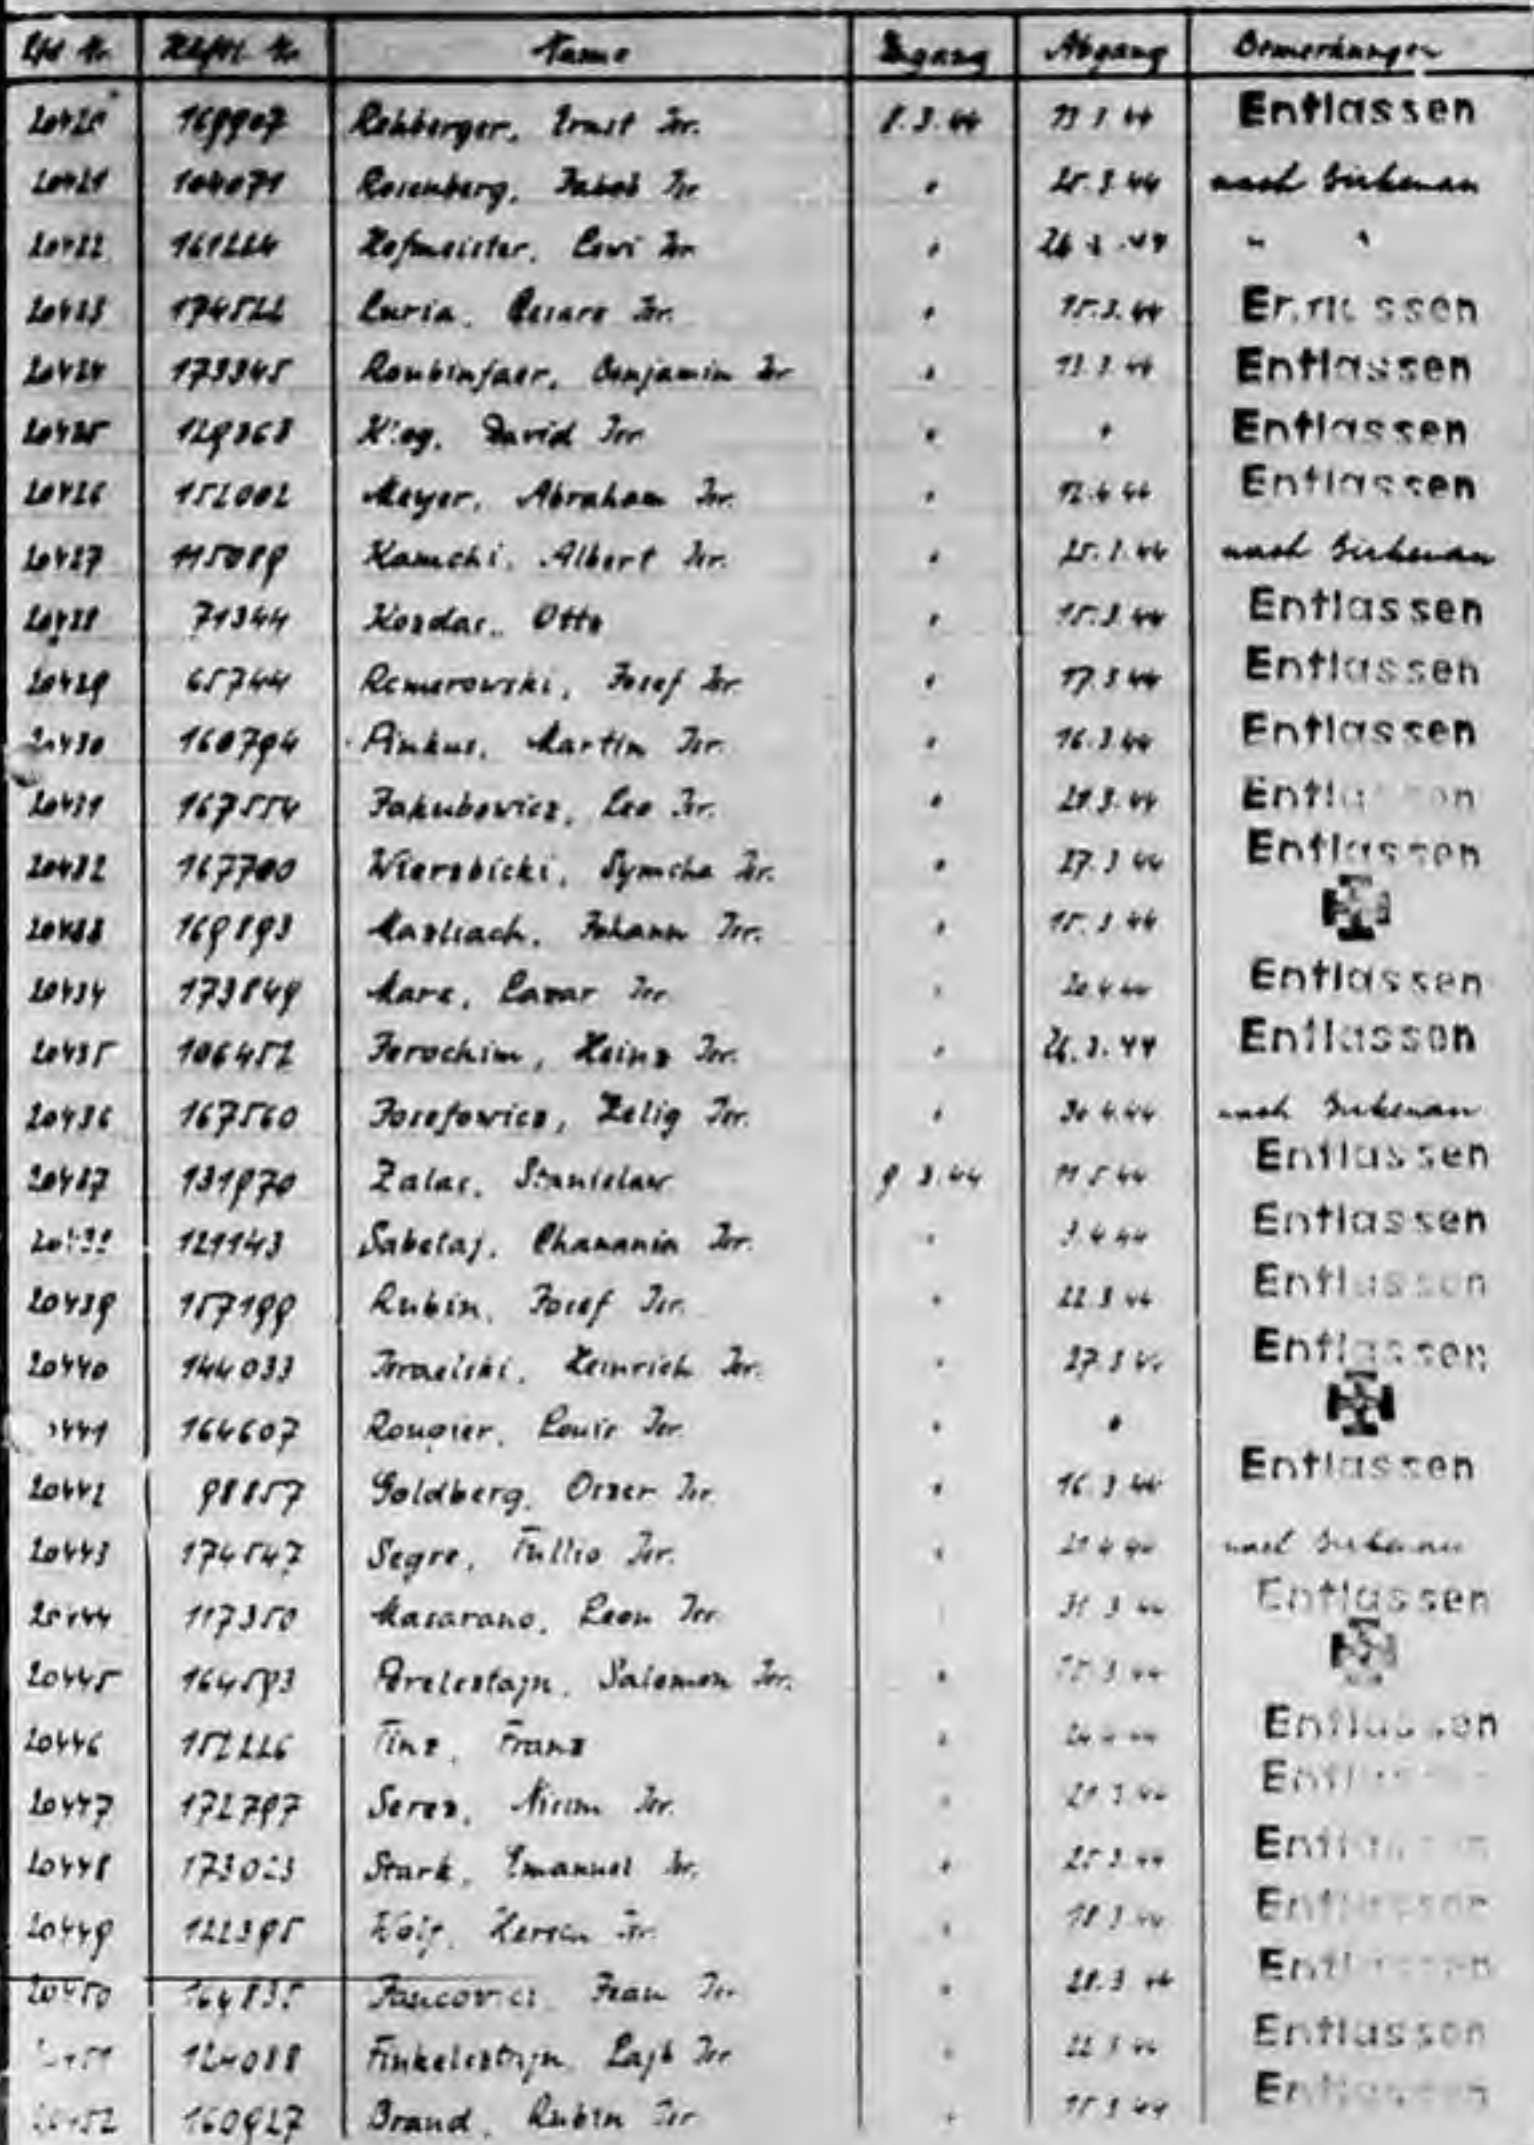 Lfd Nr. Häftl. Nr. Name Zugang Abgang Bemerkungen
20420 169907 Rehberger, Ernst Isr. 8.3.44 13 3 44 Entlassen
20421 104071 Rosenberg, Jakob Isr " 25.3.44 nach Birkenau
20422 161224 Hofmeister, Lewi Isr " 26 3.44 " "
20423 174522 Luria, Cesare Isr. " 15.3.44 Entlassen
20424 173345 Roubinfaer, Benjamin Isr " 13.3.44 Entlassen
20425 129368 David Isr. " " Entlassen
20426 152002 Meyer, Abraham Isr. " 12.4 44 Entlassen
20427 115089 Kamchi, Albert Isr. " 25.3.44 nach Birkenau
20428 71344 Otto " 15.3.44 Entlassen
20429 65744 Remerowski, Josef Isr " 17.3 44 Entlassen
20430 160794 Pinkus, Martin Isr. " 16.3.44 Entlassen
20431 167554 Jakubowicz, Leo Isr. " 3.44 Entlassen
20432 167700 Wierzbicki, Symcha Isr. " 27.3 44 Entlassen
20433 169893 Masliach, Johann Isr. " 15.3 44
20434 173849 Mare, Lazar Isr. " 20 4 44 Entlassen
20435 106452 Jerochim, Heinz Isr. " 26.3.44 Entlassen
20436 167560 Josefowicz, Zelig Isr. " 30 4.44 nach Birkenau
20437 131970 Zalac, Stanislaw 9 3.44 11 5 44 Entlassen
20438 121143 Sabelaj, Chanania Isr. " 3.4 44 Entlassen
20439 157199 Rubin, Josef Isr. " 22.3 44 Entlassen
20440 144033 Israelski, Heinrich Isr. " 27.3 44 Entlassen
20441 164607 Rougier, Louis Isr " "
20442 98857 Goldberg, Oszer Isr. " 16.3 44 Entlassen
20443 174547 Segre, Tullio Isr. " 4 44 nach Birkenau
20444 117350 Masarano, Leon Isr. 31 3 44 Entlassen
20445 164593 Salomon Isr. " 15 3 44
20446 152226 Tinz, Franz " Entlassen
20447 172797 Serez, Nissim Isr. " 3 44 Entlassen
20448 173023 Stark, Emanuel Isr. " 25 3.44 Entlassen
20449 122395 Wolf, Isr. " 18 3 44 Entlassen
20450 164835 Jean Isr " 28.3 44 Entlassen
20451 124088 Finkelsztajn, Lajb Isr " 22 3 44 Entlassen
20452 160927 Brand, Rubin Isr " 15 3 44 Entlassen